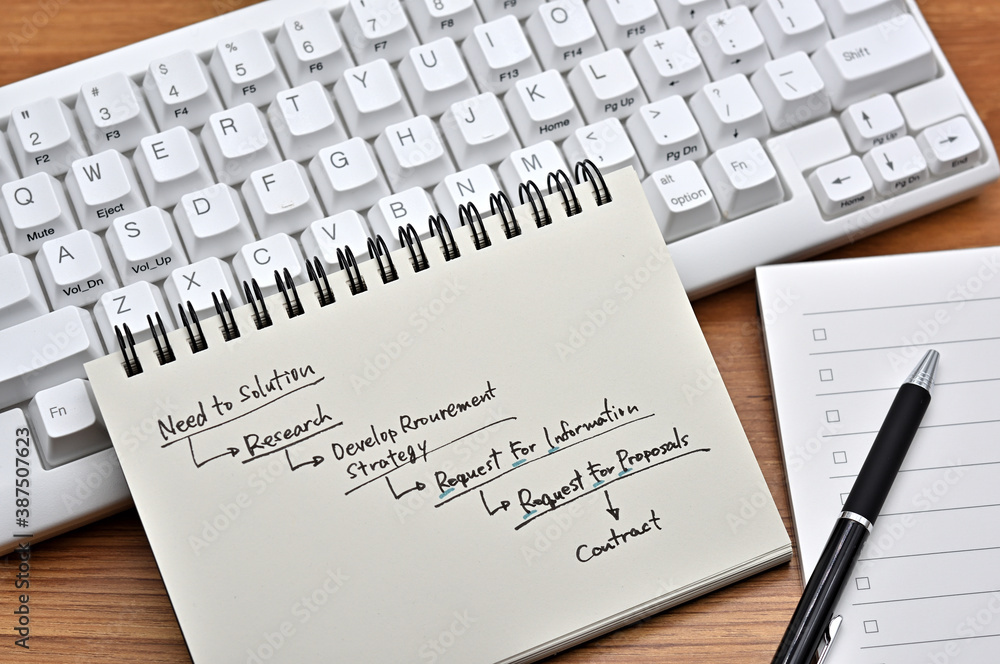 " 2 F2
# 3 F3
$ 4 F4
% 5 F5
& 6 F6
' 7 F7
( 8 F8
Q Mute
W Eject
E
R
T
Y
U
I F13
O F14
P F15
A Vol_Dn
S Vol_Up
D
F
G
H
J
K Home
L Pg Up
+ ;
* :
Shift
Z
X
C
V
B
N
M
<
> . Pg Dn
? / ↓
_ \
Fn
alt option
Fn
← Home
↑ Pg Up
↓ Pg Dn
→ End
Need to Solution
Research
Develop Prourement
strategy
Request For Information
Request For Proposals
Contract
Adobe Stock | #387507623
Adobe Stock